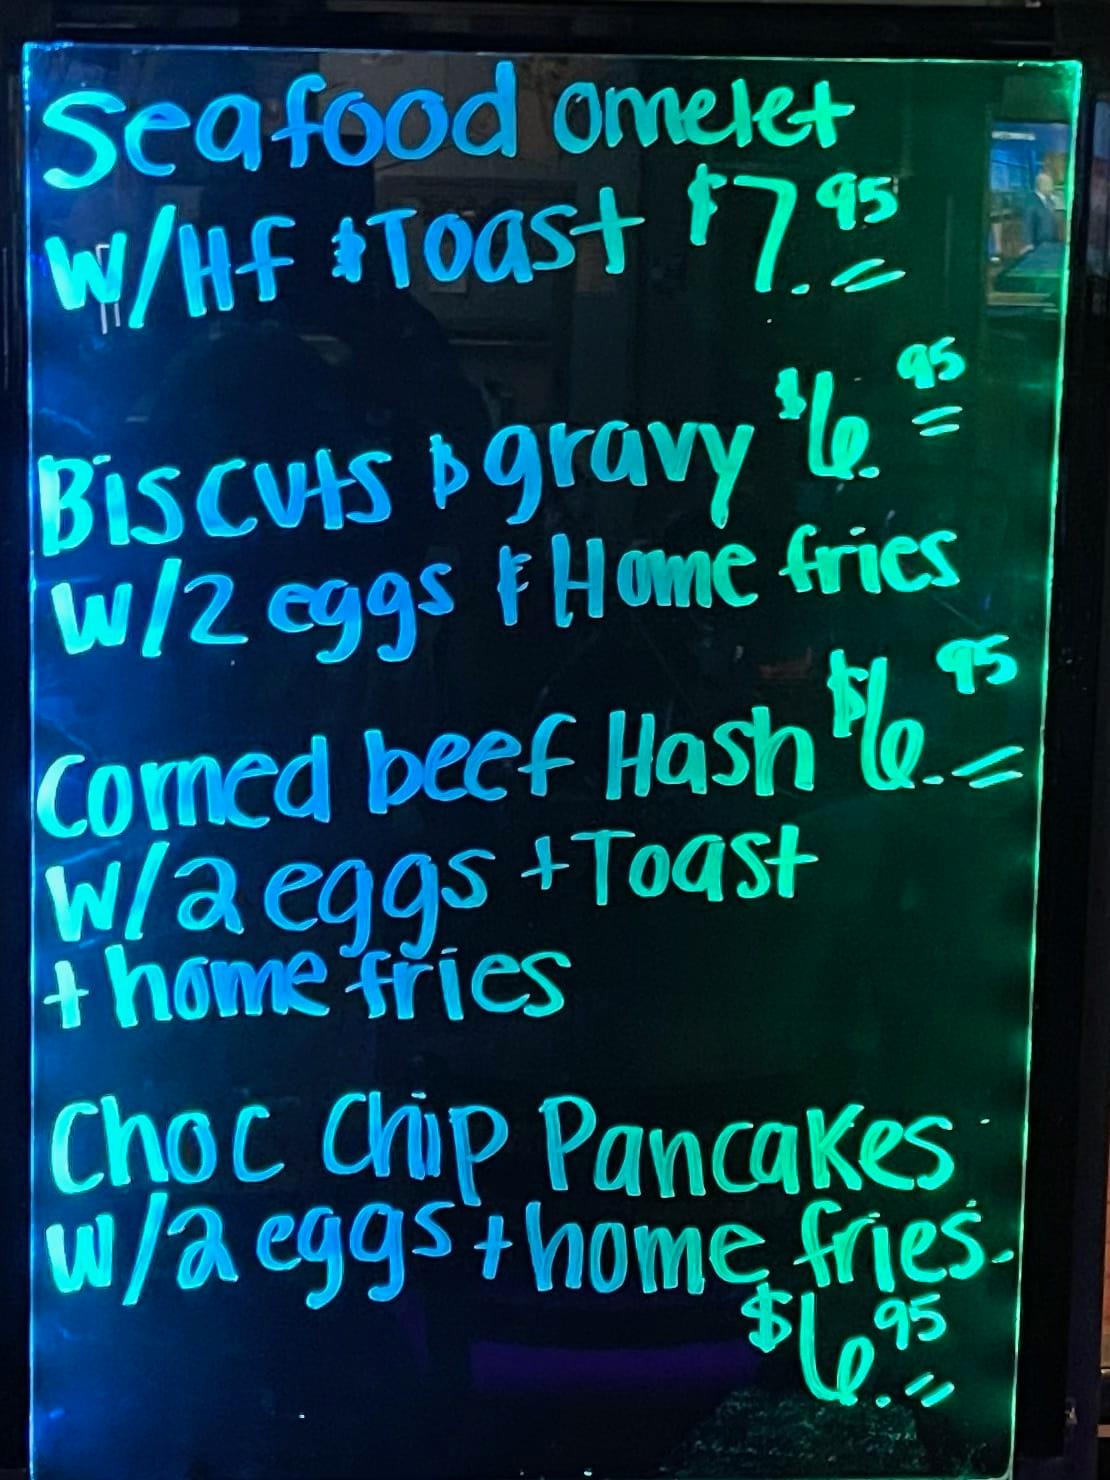 Seafood omelet
W/Hf & Toast $7.95
Biscuts & gravy $6.95
W/2 eggs & Home fries
Corned beef Hash $6.95
W/2 eggs + Toast
+ home fries
Choc Chip Pancakes
W/2 eggs + home fries.
$6.95